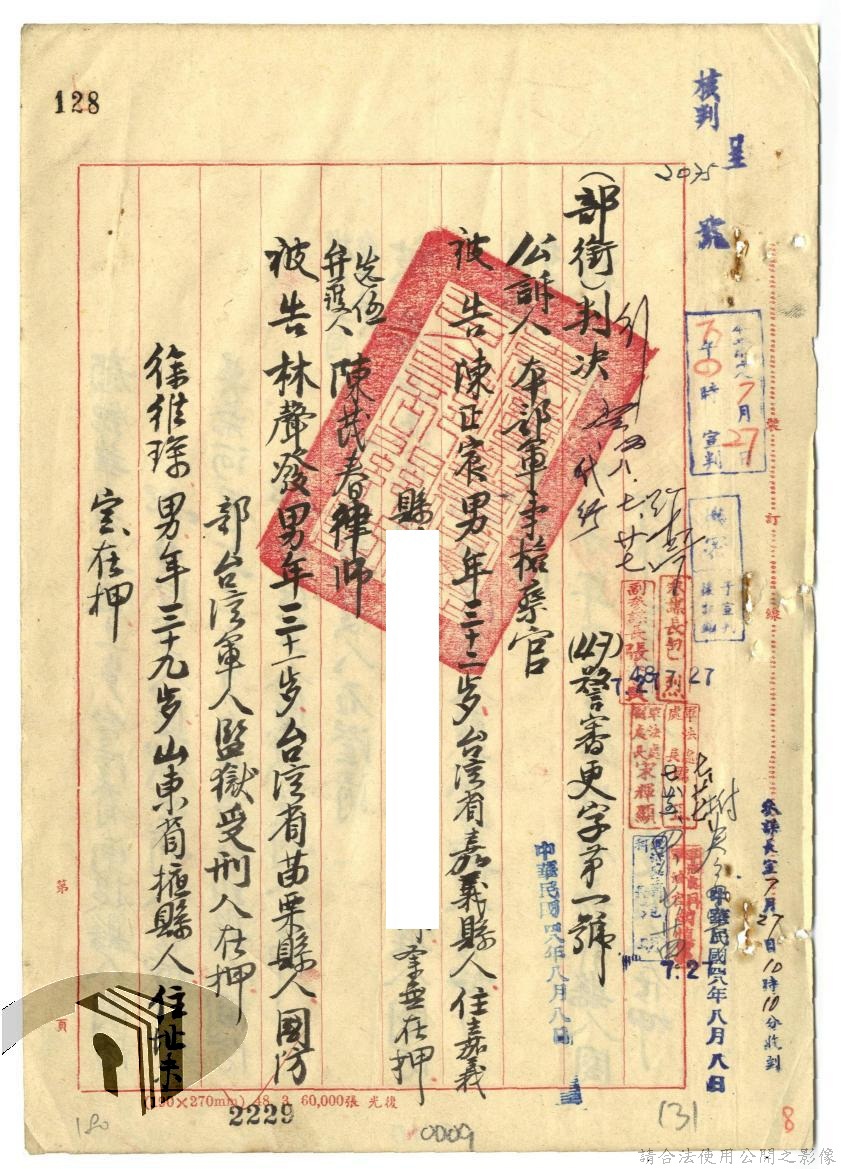 128
核判
呈
2075
號
7月27日
宣判
(部銜)判決
(47)警審更字第一號
公訴人 本部軍事檢察官
被告 陳正宸 男年三十二歲台湾省嘉義縣人住嘉義
縣
業無在押
选任
弁護人 陳茂春律師
被告 林聲發 男年三十一歲台湾省苗栗縣人國防
部台湾軍人監獄受刑人在押
徐維琛 男年三十九歲山東省掖縣人住址未
定在押
參謀長室7月27日10時10分收到
中華民國四八年八月八日
中華民國四八年八月八日
代行
八.七.廿七
48 7.27
7.27
7.27
副處長宋輝顯
號
訂
線
第
頁
(190×270mm) 48. 3. 60,000張 光復
2229
180
0009
(3)
8
請合法使用公開之影像